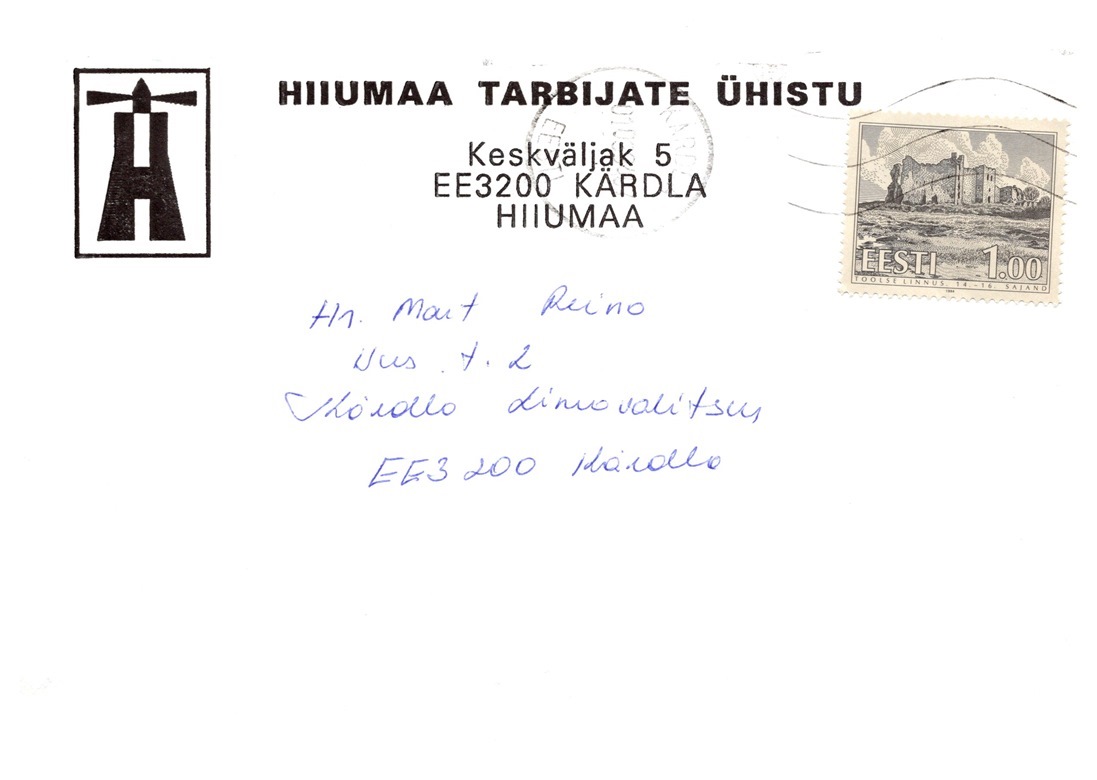 HIIUMAA TARBIJATE ÜHISTU
Keskväljak 5
EE3200 KÄRDLA
HIIUMAA
EESTI 1.00
TOOLSE LINNUS, 14.-16. SAJAND
1994
Hr. Mart Reino
Uus t. 2
Kärdla Linnavalitsus
EE3200 Kärdla